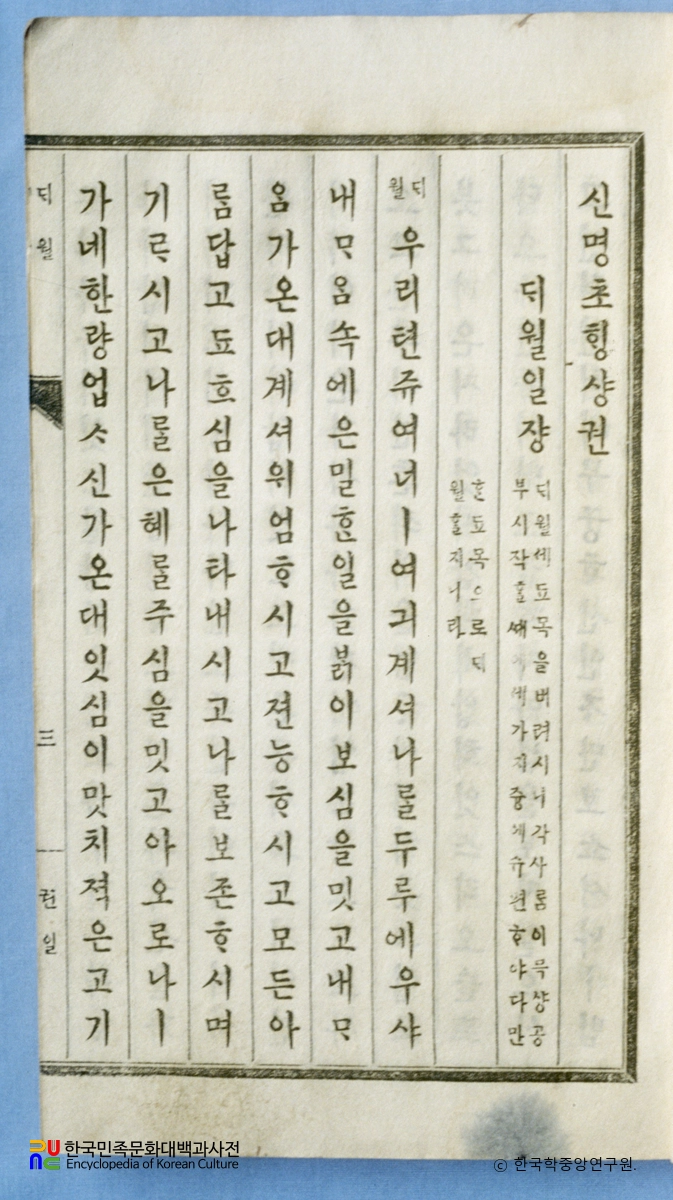 신명초힝샹권
ᄃᆡ월일쟝
ᄃᆡ월세됴목을버려시니각사ᄅᆞᆷ이믁샹공
부시작ᄒᆞᆯ쌔에세가지중에슈편ᄒᆞ야다만
ᄒᆞᆫ됴목으로ᄃᆡ
월ᄒᆞᆯ지니라
ᄃᆡ월 우리텬쥬여너ㅣ여긔계셔나ᄅᆞᆯ두루에우샤
내ᄆᆞᄋᆞᆷ속에은밀ᄒᆞᆫ일을ᄇᆞᆰ이보심을밋고내ᄆᆞ
ᄋᆞᆷ가온대계셔위엄ᄒᆞ시고젼능ᄒᆞ시고모든아
ᄅᆞᆷ답고됴흐심을나타내시고나ᄅᆞᆯ보존ᄒᆞ시며
기ᄅᆞ시고나ᄅᆞᆯ은혜ᄅᆞᆯ주심을밋고아오로나ㅣ
가네한량업ᄉᆞ신가온대잇심이맛치젹은고기
ᄃᆡ월 三 권일
한국민족문화대백과사전
Encyclopedia of Korean Culture
ⓒ 한국학중앙연구원.